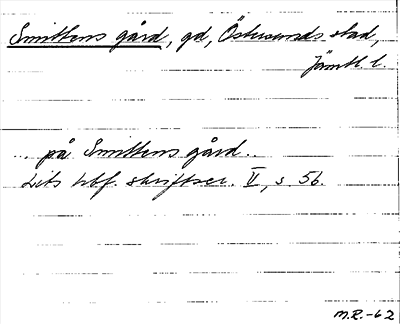 Smittens gård, gd, Östersunds stad,
Jämtl. l.
.. på Smittens gård..
Lits hbf. skriftser. II, s 56.
M.R.-62